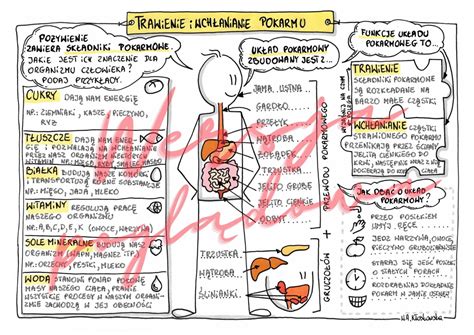 TRAWIENIE I WCHŁANIANIE POKARMU
POŻYWIENIE
ZAWIERA SKŁADNIKI POKARMOWE.
JAKIE JEST ICH ZNACZENIE DLA
ORGANIZMU CZŁOWIEKA?
PODAJ PRZYKŁADY.
CUKRY DAJĄ NAM ENERGIĘ
NP.: ZIEMNIAKI, KASZE, PIECZYWO,
RYŻ
TŁUSZCZE DAJĄ NAM ENER-
GIĘ I POZWALAJĄ NA WCHŁANIANIE
PRZEZ NASZ ORGANIZM NIEKTÓRYCH
WITAMIN NP.: MIĘSO, RYBY,
BIAŁKA BUDUJĄ NASZE KOMÓRKI
I TRANSPORTUJĄ RÓŻNE SUBSTANCJE
NP.: MIĘSO, JAJA, MLEKO
WITAMINY REGULUJĄ PRACĘ
NASZEGO ORGANIZMU
NP.: A, B, C, D, E, K (OWOCE, WARZYWA)
SOLE MINERALNE BUDUJĄ NASZ
ORGANIZM (WAPŃ, MAGNEZ ITP.)
NP.: ORZECHY, PESTKI, MLEKO
WODA STANOWI PONAD POŁOWĘ
MASY NASZEGO CIAŁA, PRAWIE
WSZYSTKIE PROCESY W NASZYM ORGANIŹ-
MIE ZACHODZĄ W JEJ OBECNOŚCI
UKŁAD POKARMOWY
ZBUDOWANY JEST Z...
JAMA USTNA
GARDŁO
PRZEŁYK
WĄTROBA
ŻOŁĄDEK
TRZUSTKA
JELITO GRUBE
JELITO CIENKIE
ODBYT
PRZEWODU POKARMOWEGO
+
GRUCZOŁÓW
TRZUSTKA
WĄTROBA
ŚLINIANKI
FUNKCJE UKŁADU
POKARMOWEGO TO...
TRAWIENIE
SKŁADNIKI POKARMOWE
SĄ ROZKŁADANE NA
BARDZO MAŁE CZĄSTKI
WCHŁANIANIE CZĄSTKI
STRAWIONEGO POKARMU
PRZENIKAJĄ PRZEZ ŚCIANY
JELITA CIENKIEGO DO
JAK DBAĆ O UKŁAD
POKARMOWY?
PRZED POSIŁKIEM
UMYJ RĘCE
JEDZ WARZYWA, OWOCE,
PIECZYWO GRUBOZIARNISTE
STARAJ SIĘ JEŚĆ POSIŁKI
O STAŁYCH PORACH
ROZDRABNIAJ DOKŁADNIE
POKARM W JAMIE USTNEJ
Wersja
poglądowa